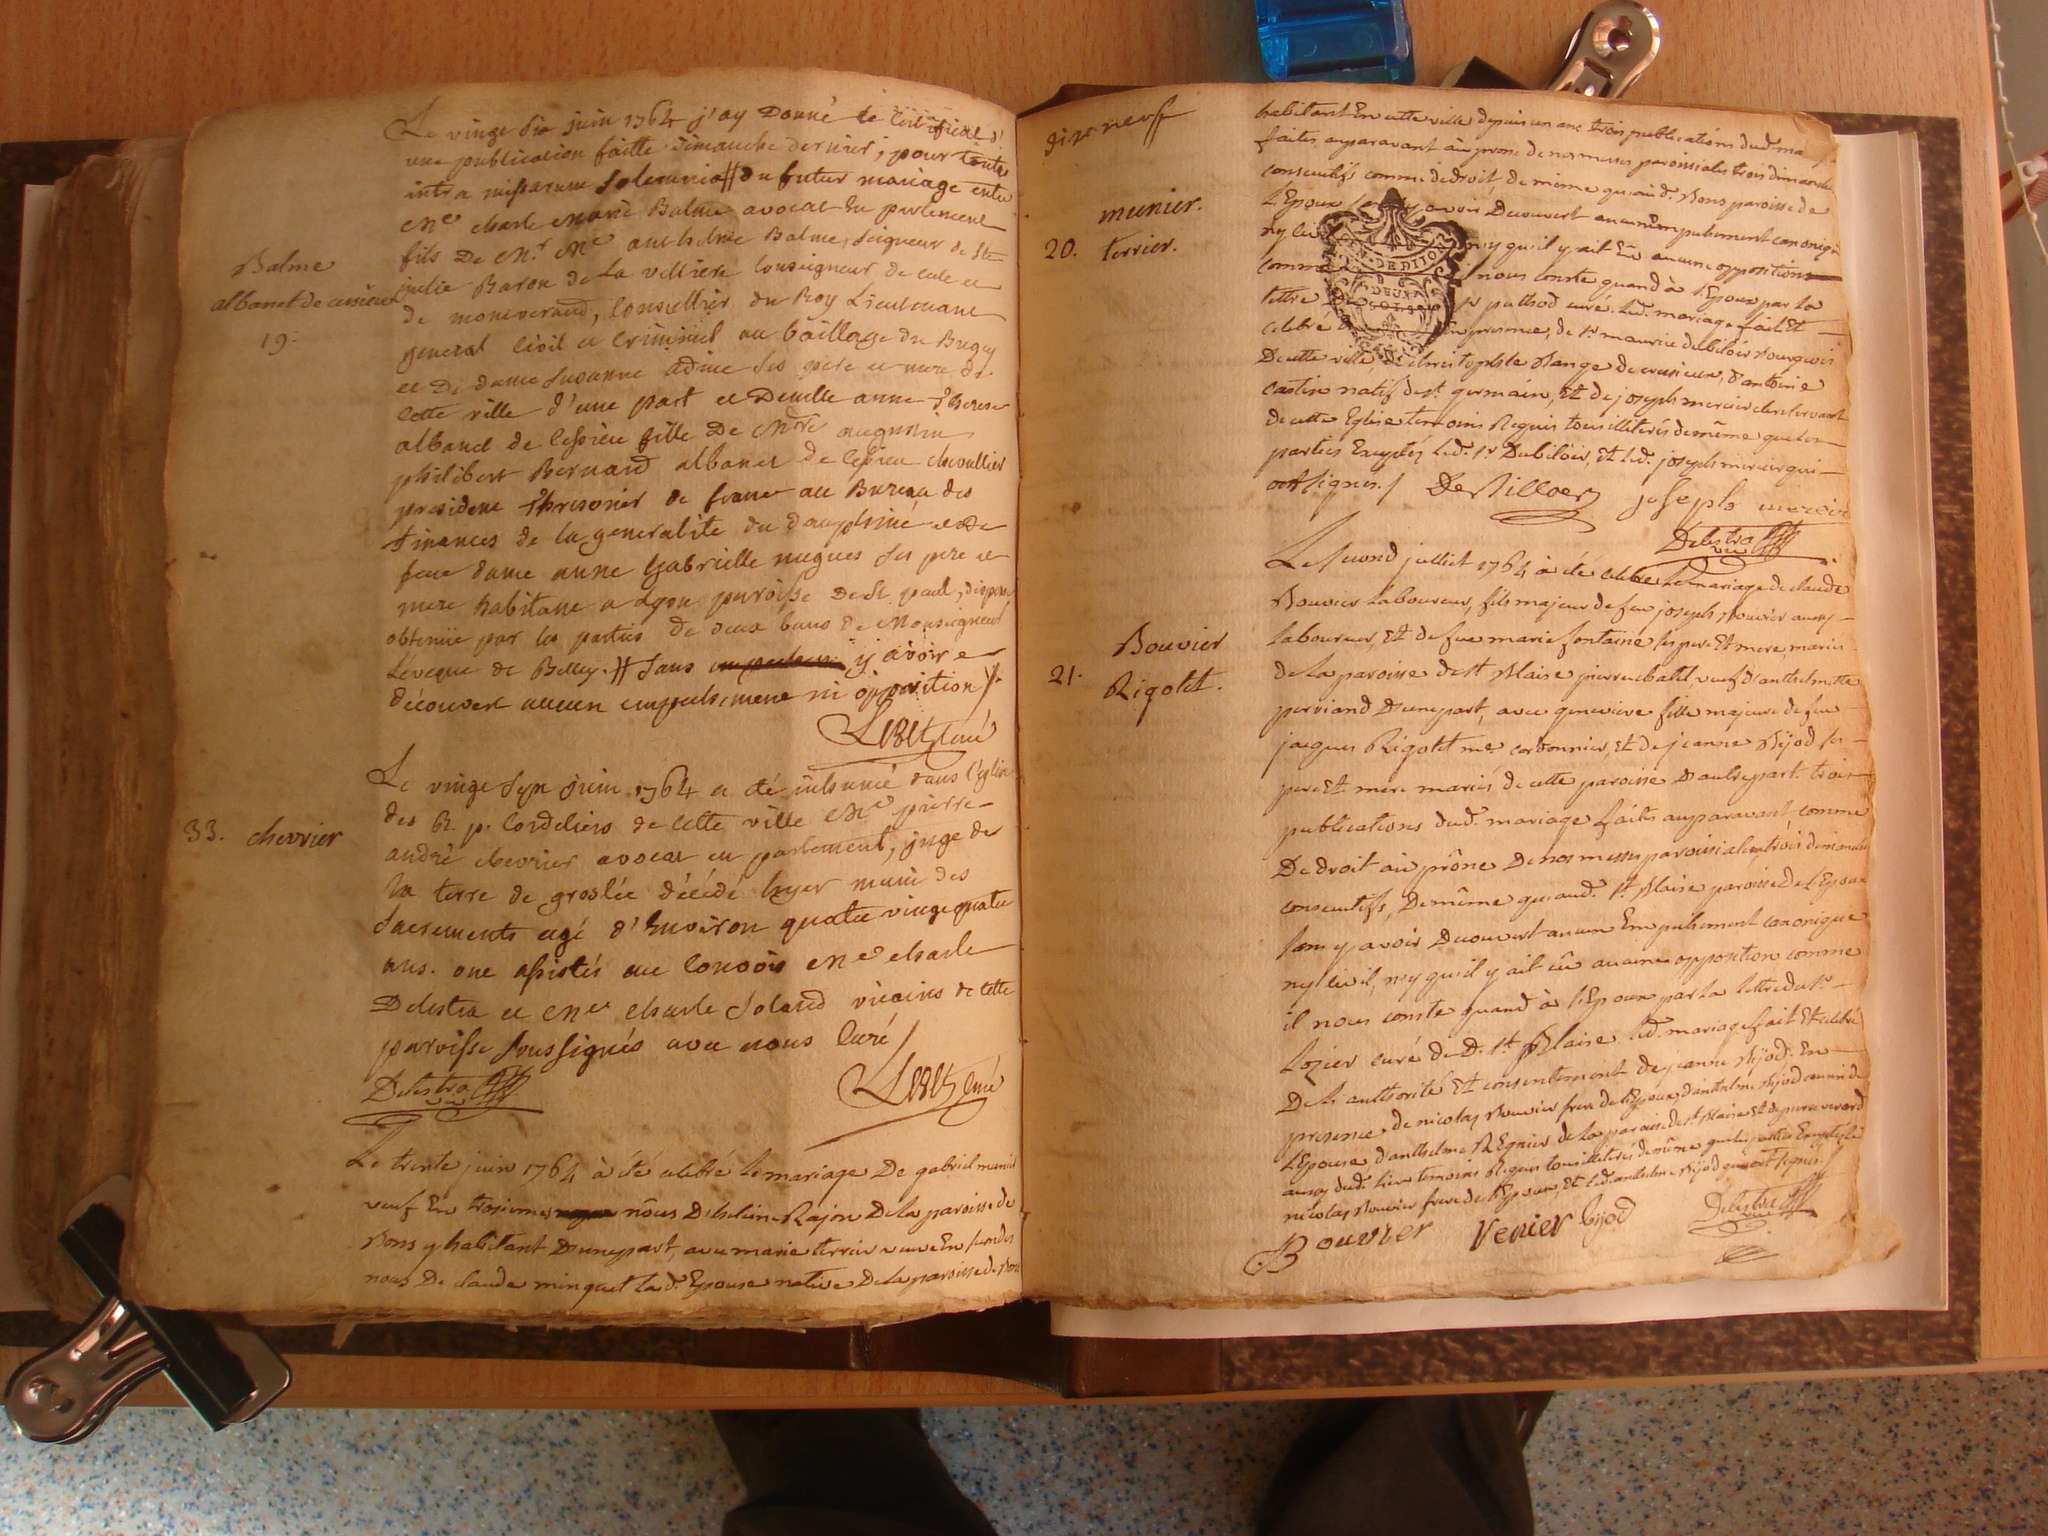 Le vingt six juin 1764 j'ay Donné le Certificat d'
une publication faitte Dimanche dernier, pour toutes
intra missarum solemnia // du futur mariage entre
Me charle marie Balme avocat en parlement
fils De Mr Me anthelme Balme, Seigneur de Ste
julie Baron de La velliere Conseigneur de cule et
de montverand, Conseillier du Roy Lieutenant
general Civil et Criminel au baillage du Bugey
et De dame Susanne adine ses pere et mere de
cette ville d'une part et Demlle anne Therese
albanel de Cessieu fille De Mre augustin
philibert Bernard albanel de Cessieu chevallier
president Thresorier de france au Bureau des
finances de la generalite du dauphiné et de
feue dame anne Gabrielle nugues ses pere et
mere habitant a Lyon paroisse De St. paul, dispense
obtenüe par les parties de deux bans de Monseigneur
Leveque de Belley. // sans y avoir
découvert aucun empechement ni opposition /.
curé
Balme
albanel de cessieu
19.
Le vingt sept juin 1764 a été inhumé dans l'églize
des R. p. Cordeliers de cette ville Me pierre
andré chevrier avocat en parlement, juge de
la terre de groslée décédé hyer muni des
Sacrements agé d'Environ quatre vingt quatre
ans. ont assistés au Convois Me charle
Delestra et Me charle Soland vicaires de cette
paroisse soussignés avec nous Curé /
Delestra curé
33. chevrier
Le trente juin 1764 à été celebré le mariage De gabriel munier
veuf En troisieme nôces D'heleine Rajon De la paroisse de
Nons y habitant D'une part, avec marie terrier veuve En secondes
noces De claude minguet lad. Epouse native De la paroisse de
dix neuf
munier.
20. terrier.
habitant En cette ville depuis un an, trois publications dud. ma
faites auparavant au prone de nos messes paroissiales trois dimanches
consecutifs comme de droit, de même qu'aud. Nons paroisse de
L'Epoux avoir Decouvert aucun Empechement canonique
ny qu'il y ait Eû aucune opposition
comme nous conste quand à l'Epoux par la
lettre curé. Led. mariage fait Et
celebré En presence, de Sr maurice dubiloir Bourgeois
De cette ville, De christophle Mange de creusieux, d'antoine
Castin natif de St. germain, Et de joseph mercier clerc servant
de cette Eglise temoins Requis tous illiterés de même que les
parties Exceptés led. Sr Dubiloir, Et led. joseph mercier qui
ont signes. / joseph mercier
Delestra
Le second juillet 1764 à été celebré le mariage de claude
Bouvier Laboureur, fils majeur de feu joseph Bouvier aussy
laboureur, Et de feue marie fontaine ses pere Et mere, mariés
de la paroisse de St Blaise pierrechatel veuf d'anthelmette
perriand D'une part, avec genevieve fille majeure de feu
jacques Rigolet me cordonnier, Et de jeanne Bijod ses
pere Et mere mariés de cette paroisse D'autre part. trois
publications dud. mariage faites auparavant comme
De droit au prône De nos messes paroissiales trois dimanches
consecutifs, De même qu'aud. St. Blaise paroisse de l'Epoux
sans y avoir Decouvert aucun Empechement canonique
ny civil, ny qu'il y ait eû aucune opposition comme
il nous conste quand à l'Epoux par la lettre du Sr
Lozier curé de D. St. Blaise. led. mariage fait Et celebré
De l'authorité Et consentement de jeanne Bijod. En
presence de nicolas Bouvier frere de l'Epoux, d'anthelme Bijod cousin de
l'Epouse d'anthelme Regnier de la paroisse de St Blaise Et de pierre
aussy dud. lieu temoins Requis tous illiterés de même que les parties Exceptés led.
nicolas Bouvier frere de l'Epoux, Et led. anthelme Bijod qui ont signes. /
Bouvier Venier bijod Delestra
Bouvier
21.
Rigolet.